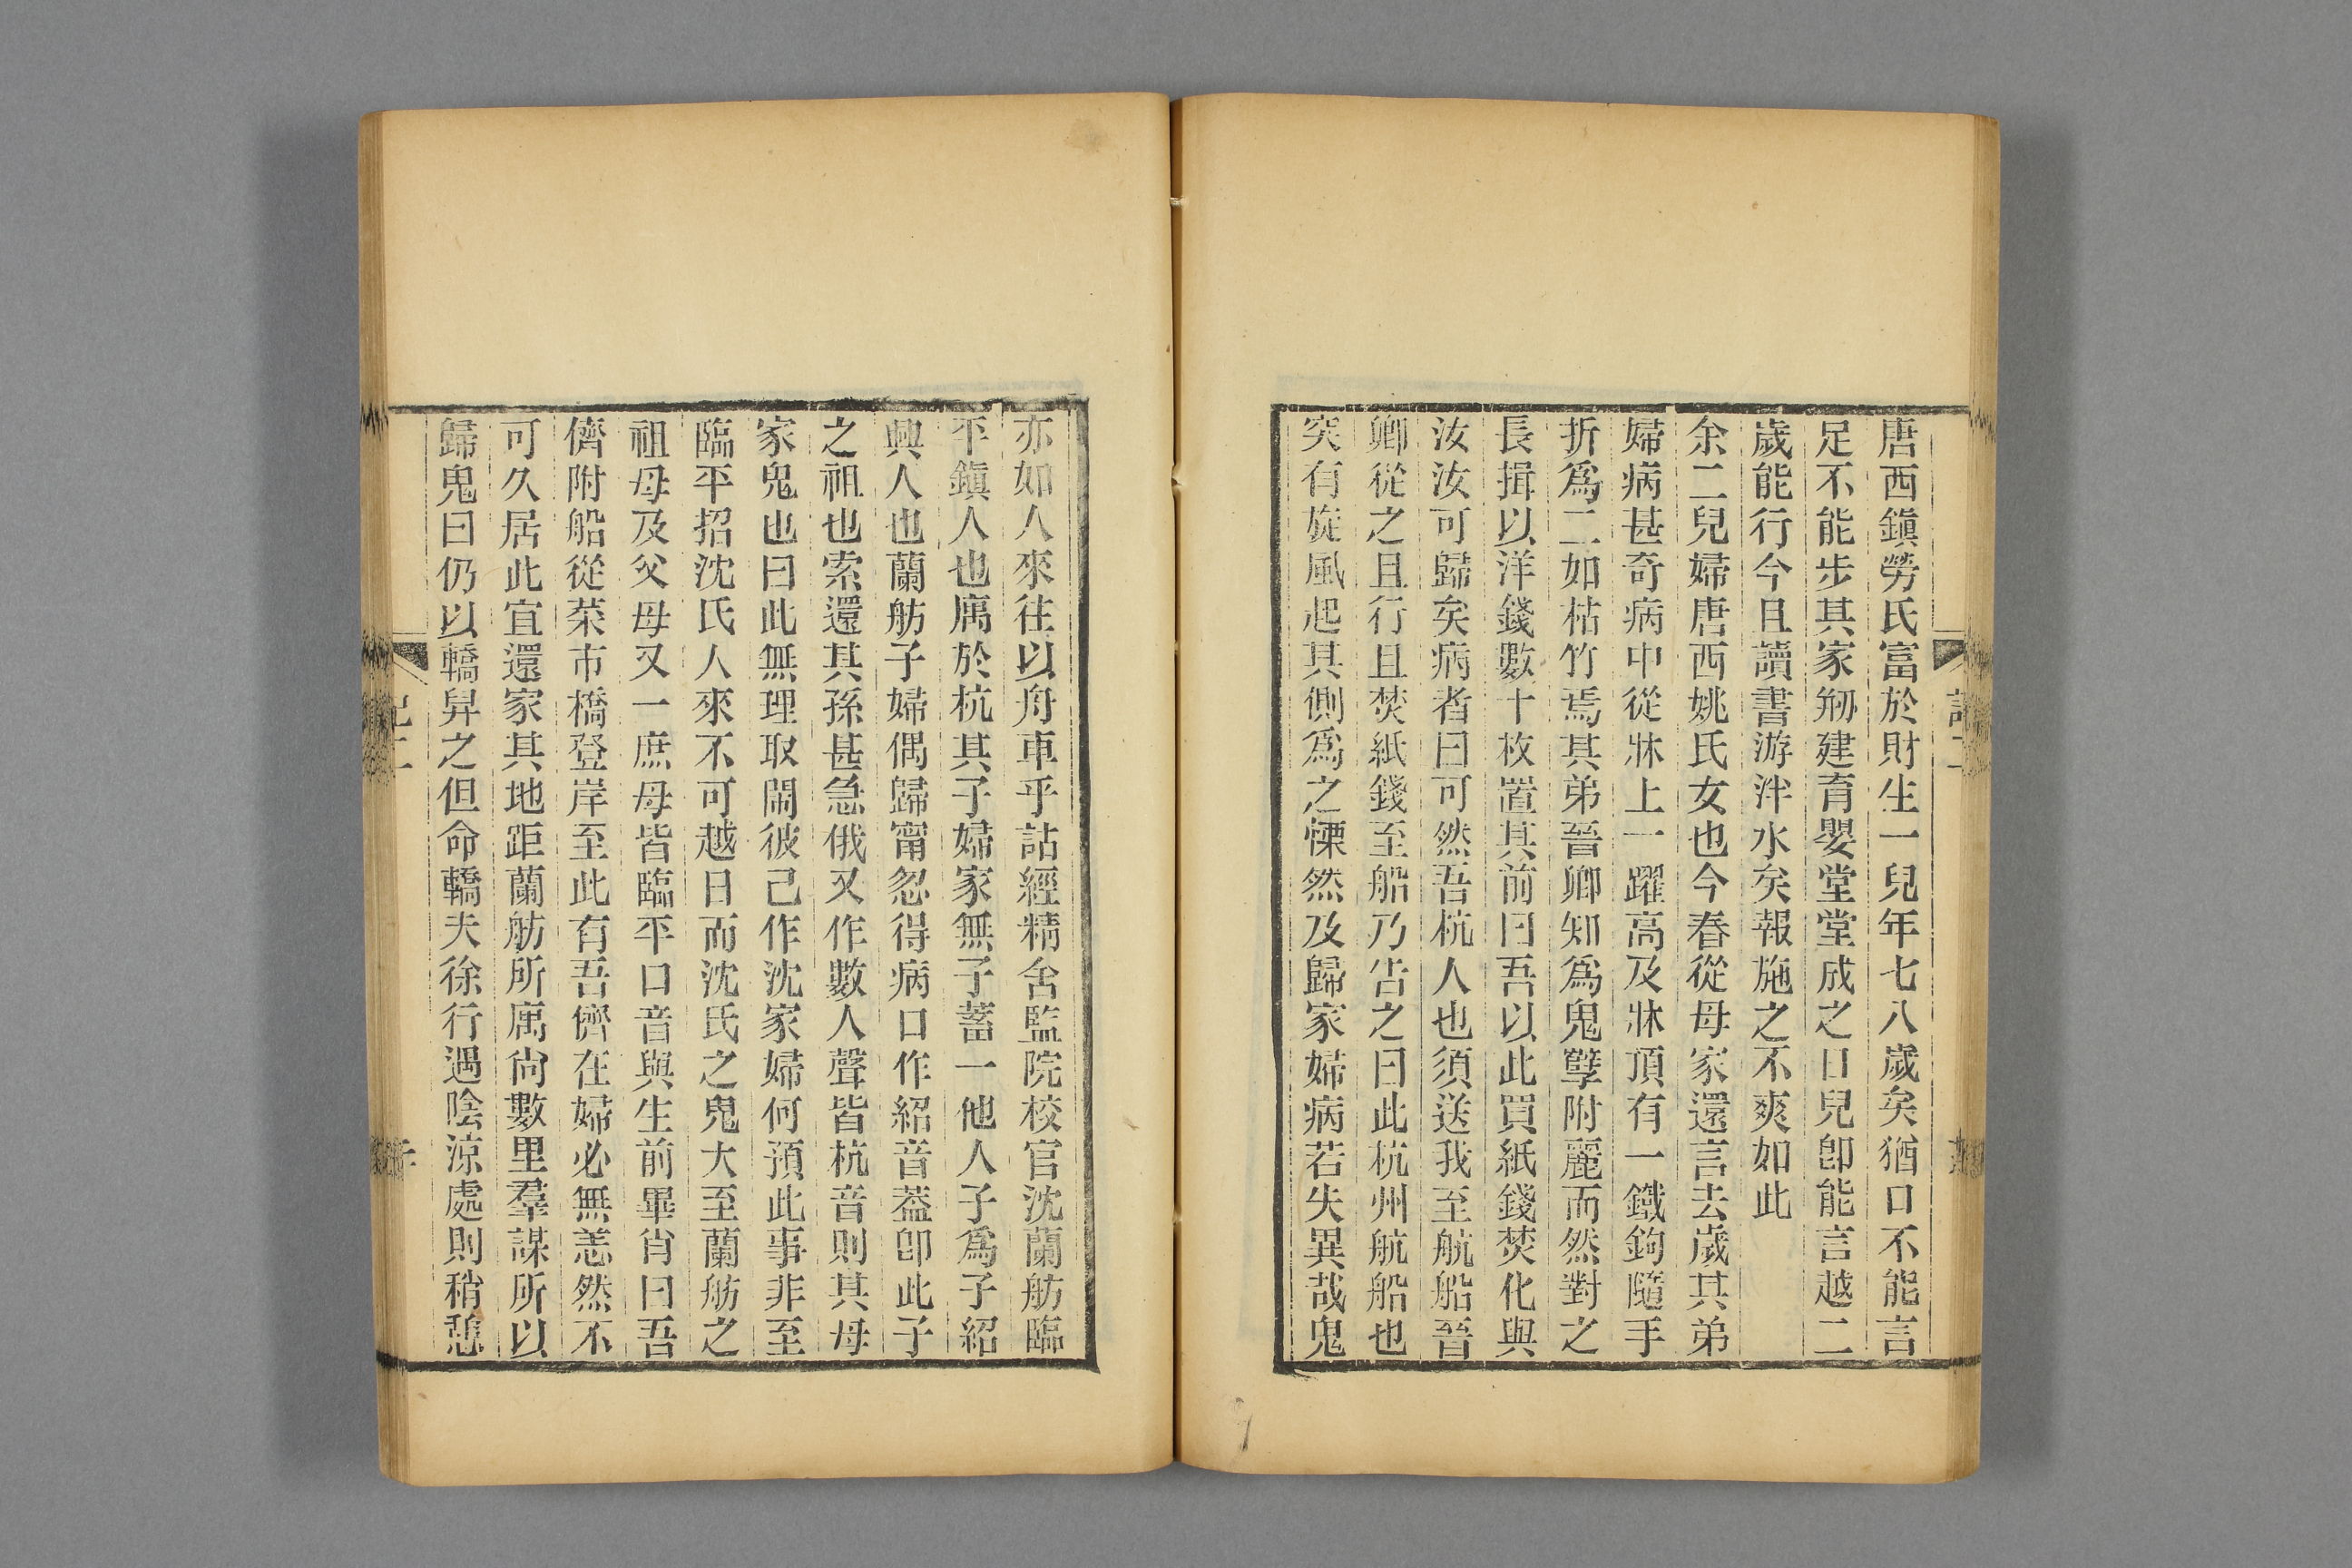 唐西鎭勞氏富於財生一兒年七八歲矣猶口不能言
足不能步其家剏建育嬰堂堂成之日兒卽能言越二
歲能行今且讀書游泮水矣報施之不爽如此
余二兒婦唐西姚氏女也今春從母家還言去歲其弟
婦病甚奇病中從牀上一躍高及牀頂有一鐵鉤隨手
折爲二如枯竹焉其弟晉卿知爲鬼孽附麗而然對之
長揖以洋錢數十枚置其前曰吾以此買紙錢焚化與
汝汝可歸矣病者曰可然吾杭人也須送我至航船晉
卿從之且行且焚紙錢至船乃告之曰此杭州航船也
突有旋風起其側爲之慄然及歸家婦病若失異哉鬼
亦如人來往以舟車乎詁經精舍監院校官沈蘭舫臨
平鎭人也寓於杭其子婦家無子蓄一他人子爲子紹
興人也蘭舫子婦偶歸甯忽得病口作紹音蓋卽此子
之祖也索還其孫甚急俄又作數人聲皆杭音則其母
家鬼也曰此無理取鬧彼己作沈家婦何預此事非至
臨平招沈氏人來不可越日而沈氏之鬼大至蘭舫之
祖母及父母又一庶母皆臨平口音與生前畢肖曰吾
儕附船從菜市橋登岸至此有吾儕在婦必無恙然不
可久居此宜還家其地距蘭舫所寓尙數里羣謀所以
歸鬼曰仍以轎舁之但命轎夫徐行遇陰涼處則稍憩